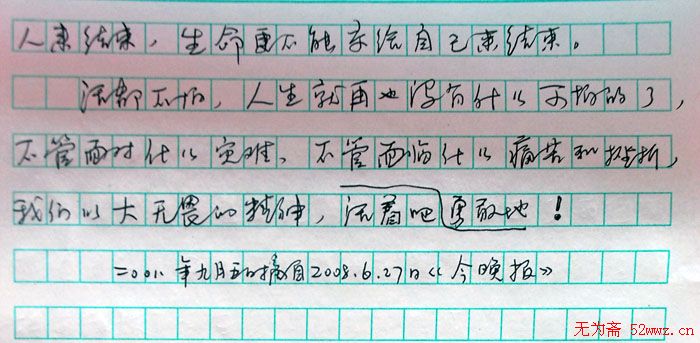 人来结束，生命更不能交给自己来结束。
活都不怕，人生就再也没有什么可怕的了，
不管面对什么灾难、不管面临什么痛苦和挫折，
我们以大无畏的精神，活着吧勇敢地！
年九月五日摘自2008.6.27日《今晚报》
无为斋 52wwz.cn